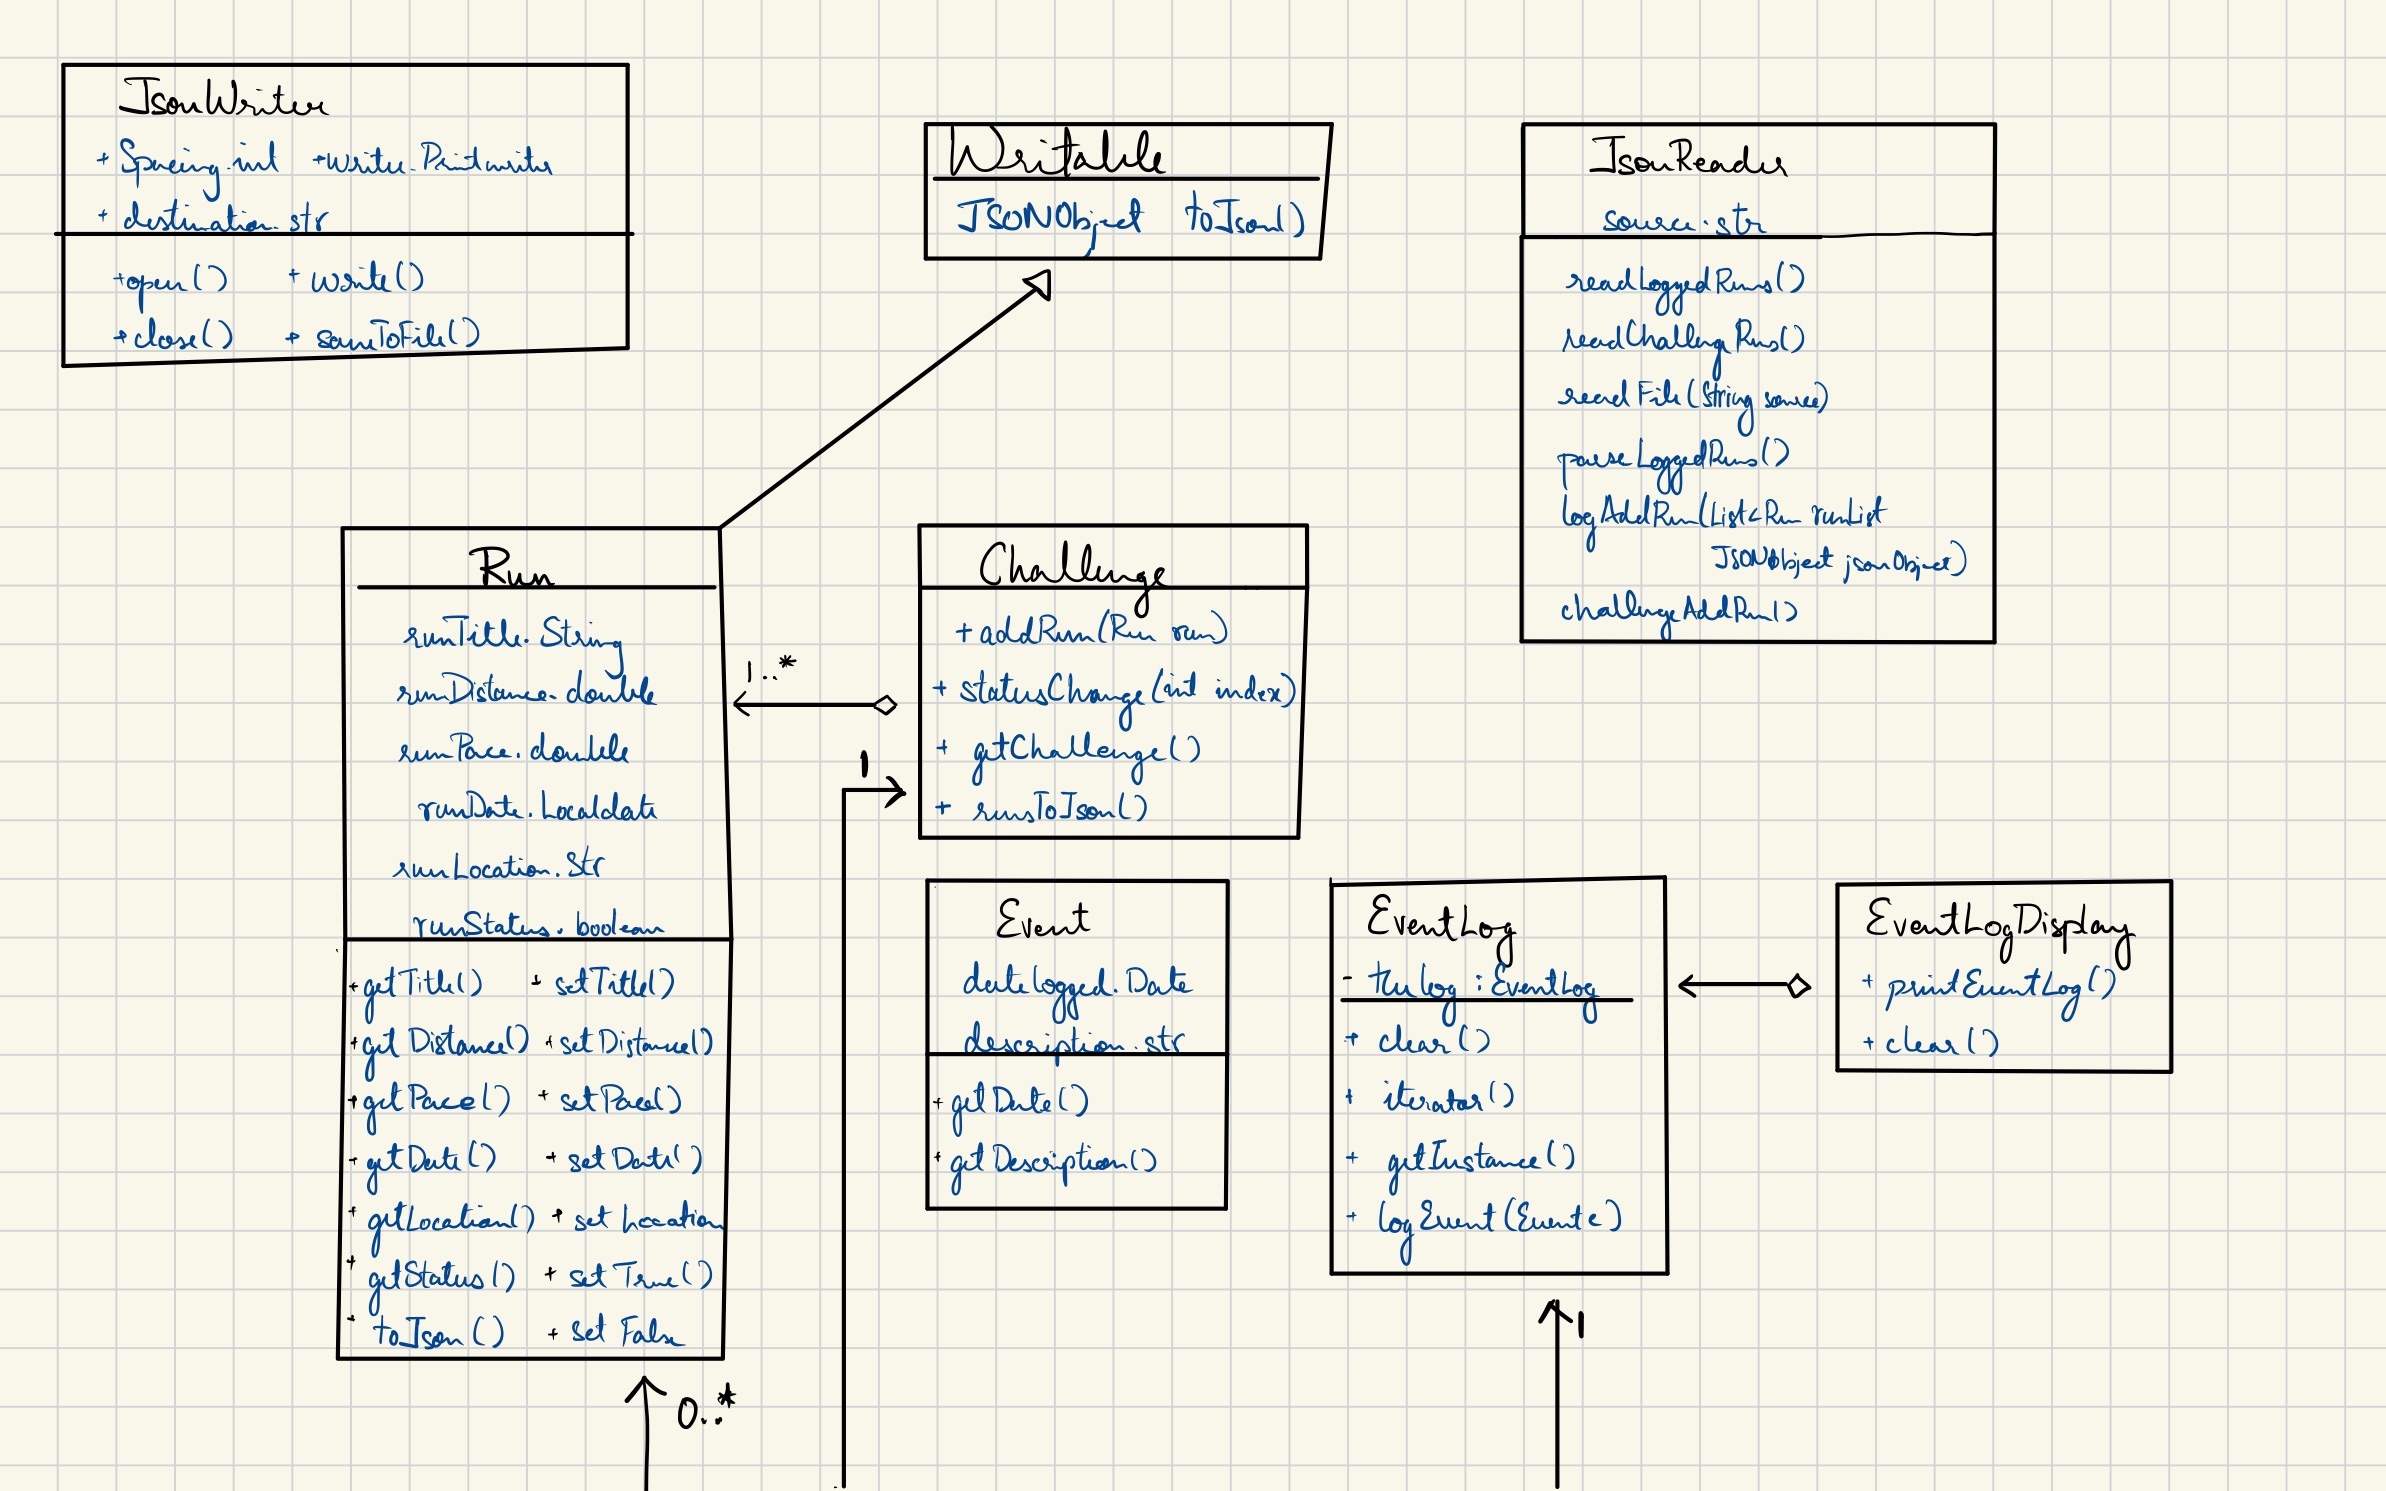 JsonWriter
+ Spacing.int +writer.Printwriter
+ destination.str
+open() + write()
+close() + saveToFile()
Writable
JSONObject toJson()
JsonReader
source.str
readLoggedRuns()
readChallengeRuns()
readFile(String source)
parseLoggedRuns()
logAddRun(List<Run runList
JSONObject jsonObject)
challengeAddRun()
Run
runTitle.String
runDistance.double
runPace.double
runDate.Localdate
runLocation.Str
runStatus.boolean
+getTitle() + setTitle()
+getDistance() + setDistance()
+getPace() + setPace()
+getDate() + setDate()
+getLocation() + setLocation
+getStatus() + setTrue()
+toJson() + set False
0..*
1..*
Challenge
+addRun(Run run)
+ statusChange(int index)
+ getChallenge()
+ runsToJson()
1
Event
dateLogged.Date
description.str
+getDate()
+getDescription()
EventLog
- theLog : EventLog
+ clear()
+ iterator()
+ getInstance()
+ logEvent(Event e)
1
EventLogDisplay
+ printEventLog()
+ clear()